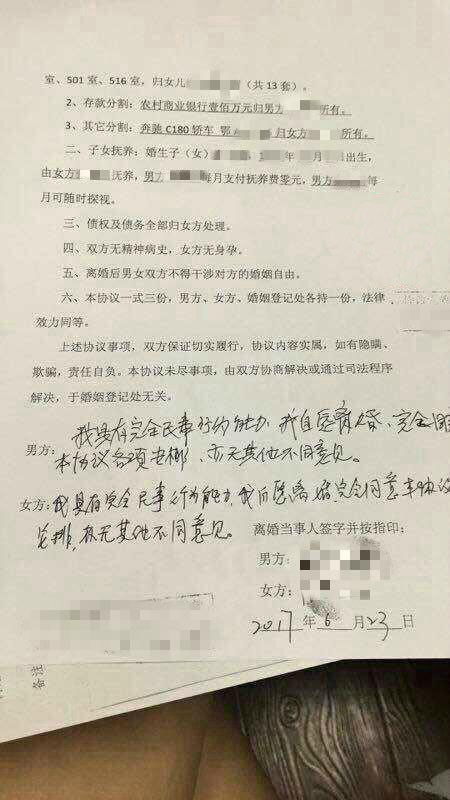 室、501 室、516 室，归女儿（共 13 套）。
2、存款分割：农村商业银行壹佰万元归男方所有。
3、其它分割：奔驰 C180 轿车 鄂归女方所有。
二、子女抚养：婚生子（女），年月出生，
由女方抚养，男方每月支付抚养费零元，男方每
月可随时探视。
三、债权及债务全部归女方处理。
四、双方无精神病史，女方无身孕。
五、离婚后男女双方不得干涉对方的婚姻自由。
六、本协议一式三份，男方、女方、婚姻登记处各持一份，法律
效力同等。
上述协议事项，双方保证切实履行，协议内容实属，如有隐瞒、
欺骗，责任自负。本协议未尽事项，由双方协商解决或通过司法程序
解决，于婚姻登记处无关。
我具有完全民事行为能力，我自愿离婚，完全同
男方：本协议各项安排，亦无其他不同意见。
女方：我具有完全民事行为能力，我自愿离婚完全同意本协议
安排，亦无其他不同意见。
离婚当事人签字并按指印：
男方：
女方：
2017 年 6 月 23 日
备注